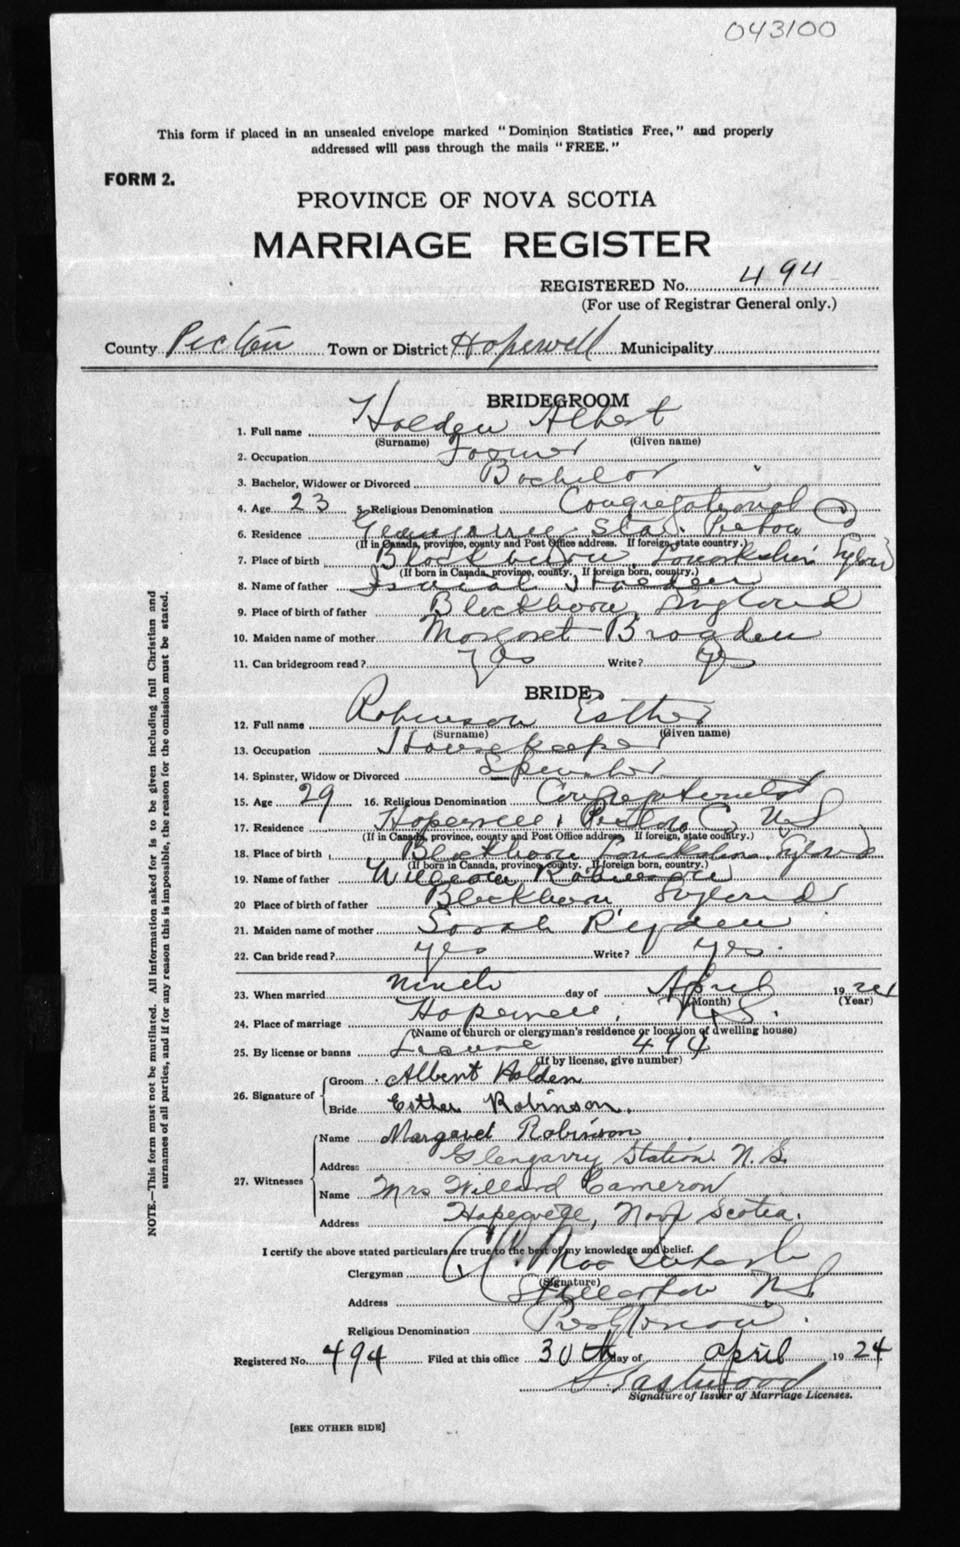 043100
This form if placed in an unsealed envelope marked "Dominion Statistics Free," and properly
addressed will pass through the mails "FREE."
FORM 2.
PROVINCE OF NOVA SCOTIA
MARRIAGE REGISTER
REGISTERED No. 494
(For use of Registrar General only.)
County Pictou Town or District Hopewell Municipality
BRIDEGROOM
1. Full name Holden Albert
(Surname) (Given name)
2. Occupation Farmer
3. Bachelor, Widower or Divorced Bachelor
4. Age 23 5. Religious Denomination Congregational
6. Residence Glengarry Sta. Pictou
(If in Canada, province, county and Post Office address. If foreign, state country.)
7. Place of birth Blackburn, England
(If born in Canada, province, county. If foreign born, country.)
8. Name of father Holden
9. Place of birth of father Blackburn, England
10. Maiden name of mother Margaret Brogden
11. Can bridegroom read? Yes Write? yes
BRIDE
12. Full name Robinson Esther
(Surname) (Given name)
13. Occupation Housekeeper
14. Spinster, Widow or Divorced Spinster
15. Age 29 16. Religious Denomination Congregationalist
17. Residence Hopewell, Pictou Co NS
(If in Canada, province, county and Post Office address, If foreign, state country.)
18. Place of birth Blackburn Lancashire England
(If born in Canada, province, county. If foreign born, country.)
19. Name of father William Robinson
20 Place of birth of father Blackburn England
21. Maiden name of mother Sarah Ryden
22. Can bride read? yes Write? yes.
23. When married Ninth day of April 1924
(Month) (Year)
24. Place of marriage Hopewell, N.S.
(Name of church or clergyman's residence or location of dwelling house)
25. By license or banns License 494
(If by license, give number)
26. Signature of
Groom Albert Holden
Bride Esther Robinson.
27. Witnesses
Name Margaret Robinson
Address Glengarry Station N.S.
Name Mrs Willard Cameron
Address Hopewell, Nova Scotia.
I certify the above stated particulars are true to the best of my knowledge and belief.
Clergyman
(Signature)
Address Stellarton N.S.
Religious Denomination
Registered No. 494 Filed at this office 30th day of April 1924
Eastwood
Signature of Issuer of Marriage Licenses.
[SEE OTHER SIDE]
NOTE.—This form must not be mutilated. All information asked for is to be given including full Christian and
surnames of all parties, and if for any reason this is impossible, the reason for the omission must be stated.